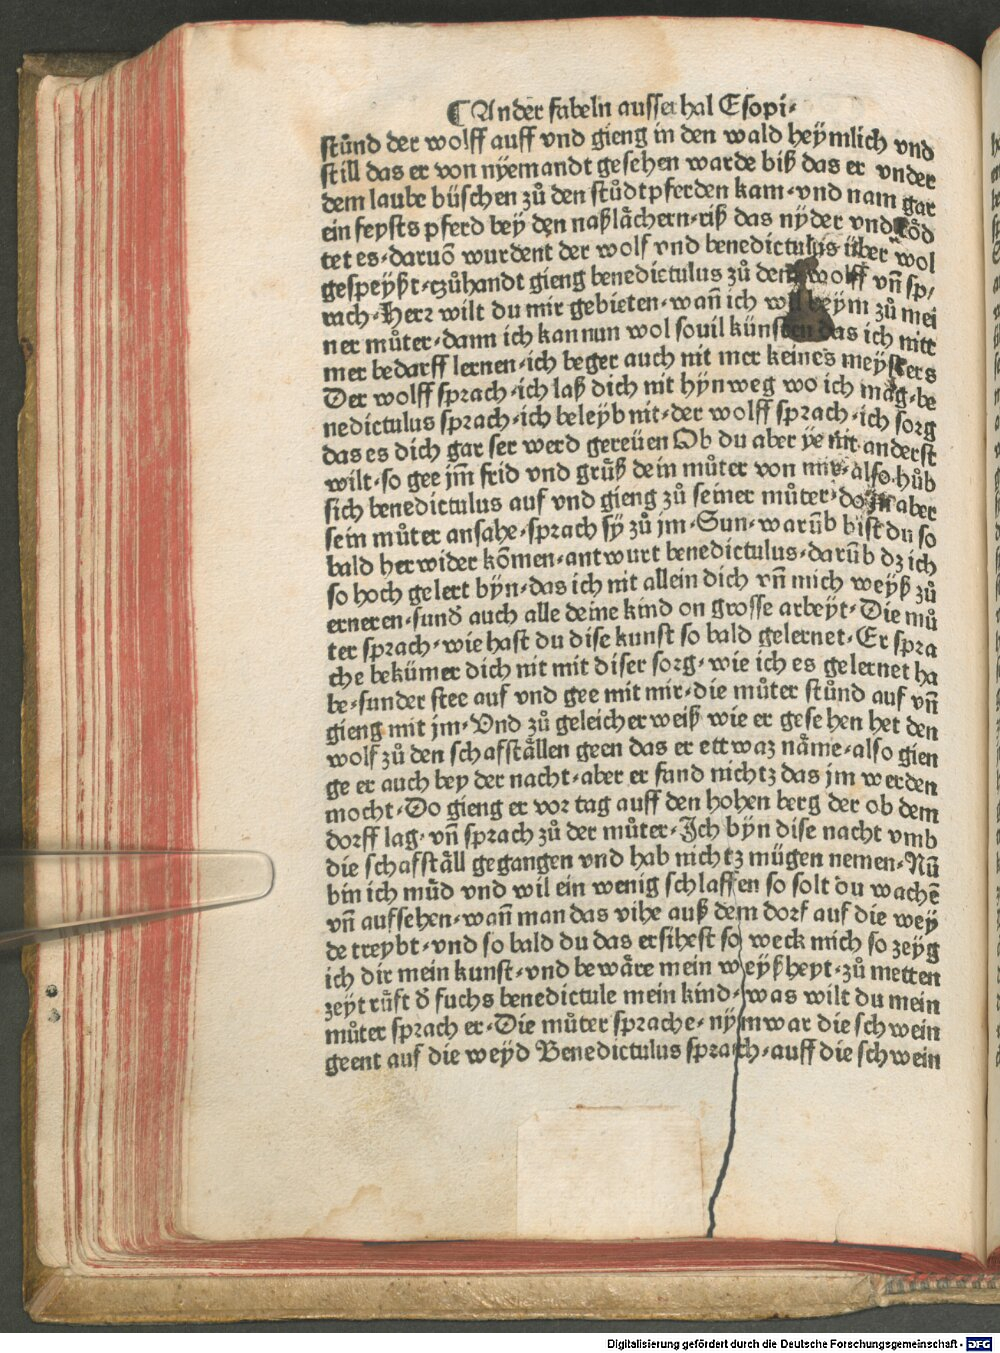 ¶ Ander fabeln ausserhal Esopi⸗
stůnd der wolff auff vnd gieng in den wald heÿmlich vnd
still das er von nÿemandt gesehen warde biß das er vnder
dem laube büschen zů den stůdtpferden kam⸗vnd nam gar
ein feysts pferd beÿ den naßlǎchern⸗riß das nÿder vnd tǒd
tet es⸗daruō wurdent der wolf vnd benedictulus über wol
gespeÿßt⸗czůhandt gieng benedictulus zů dem wolff vn̄ sp⸗
rach⸗Herꝛ wilt du mir gebieten⸗wan̄ ich wil heÿm zů mei
ner můter⸗dann ich kan nun wol souil künsten das ich nitt
mer bedarff lernen⸗ich beger auch nit mer keines meÿsters
Der wolff sprach⸗ich laß dich nit hÿnweg wo ich mag⸗be
nedictulus sprach⸗ich beleÿb nit⸗der wolff sprach⸗ich sorg
das es dich gar ser werd gereüen Ob du aber ÿe nit anderst
wilt⸗so gee jm̄ frid vnd grůß dein můter von mir⸗also hůb
sich benedictulus auf vnd gieng zů seiner můter⸗do jn aber
sein můter ansahe⸗sprach sÿ zů jm⸗Sun⸗warūb bist du so
bald herwider kōmen⸗antwurt benedictulus⸗darūb dz ich
so hoch gelert bÿn⸗das ich nit allein dich vn̄ mich weÿß zů
erneren⸗sund̄ auch alle deine kind on grosse arbeÿt⸗Die mů
ter sprach⸗wie hast du dise kunst so bald gelernet⸗Er spra
che bekümer dich nit mit diser sorg⸗wie ich es gelernet ha
be⸗sunder stee auf vnd gee mit mir⸗die můter stůnd auf vn̄
gieng mit jm⸗Vnd zů geleicher weiß wie er gesehen het den
wolf zů den schafstǎllen geen das er ettwaz nǎme⸗also gien
ge er auch bey der nacht⸗aber er fand nichtz das jm werden
mocht⸗Do gieng er vor tag auff den hohen berg der ob dem
dorff lag⸗vn̄ sprach zů der můter⸗Ich bÿn dise nacht vmb
die schafstǎll gegangen vnd hab nichtz mügen nemen⸗Nū
bin ich mǔd vnd wil ein wenig schlaffen so solt du wachē
vn̄ aufsehen⸗wan̄ man das vihe auß dem dorf auf die wey
de treybt⸗vnd so bald du das ersihest so weck mich so zeÿg
ich dir mein kunst⸗vnd bewǎre mein weÿßheyt⸗zů metten
zeÿt růft d̄ fuchs benedictule mein kind⸗was wilt du mein
můter sprach er⸗Die můter sprache⸗nÿm war die schwein
geent auf die weÿd Benedictulus sprach⸗auff die schwein
Digitalisierung gefördert durch die Deutsche Forschungsgemeinschaft - DFG